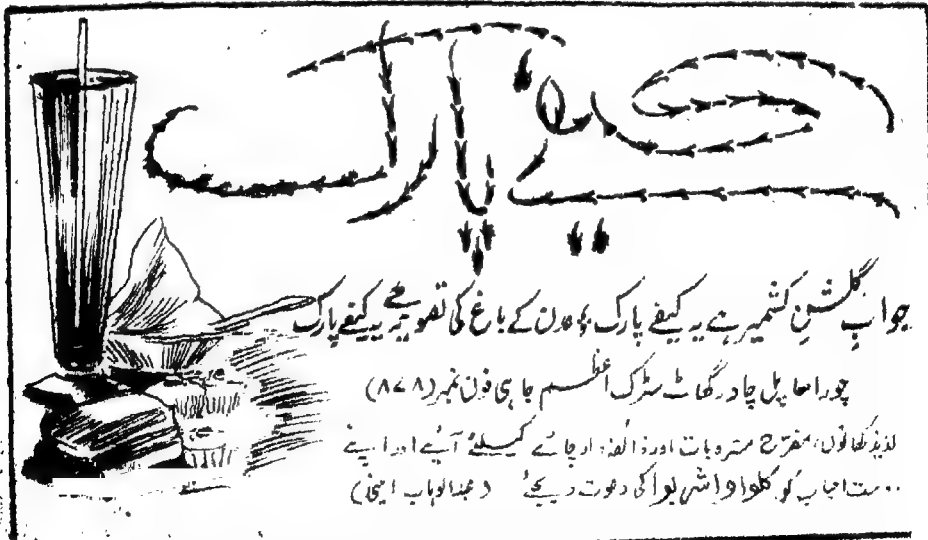 کیفے پارک
جوابِ گلشنِ کشمیر ہے یہ کیفے پارک ؛ عدن کے باغ کی تصویر ہے یہ کیفے پارک
چوراہا پل چادر گھاٹ سڑک اعظم جاہی فون نمبر (۸۷۸)
لذیذ کھانوں، مفرح مشروبات اور ذائقہ دار چائے کیلئے آئیے اور اپنے
دوست احباب کو کلوا واشربوا کی دعوت دیجئے (عبدالوہاب